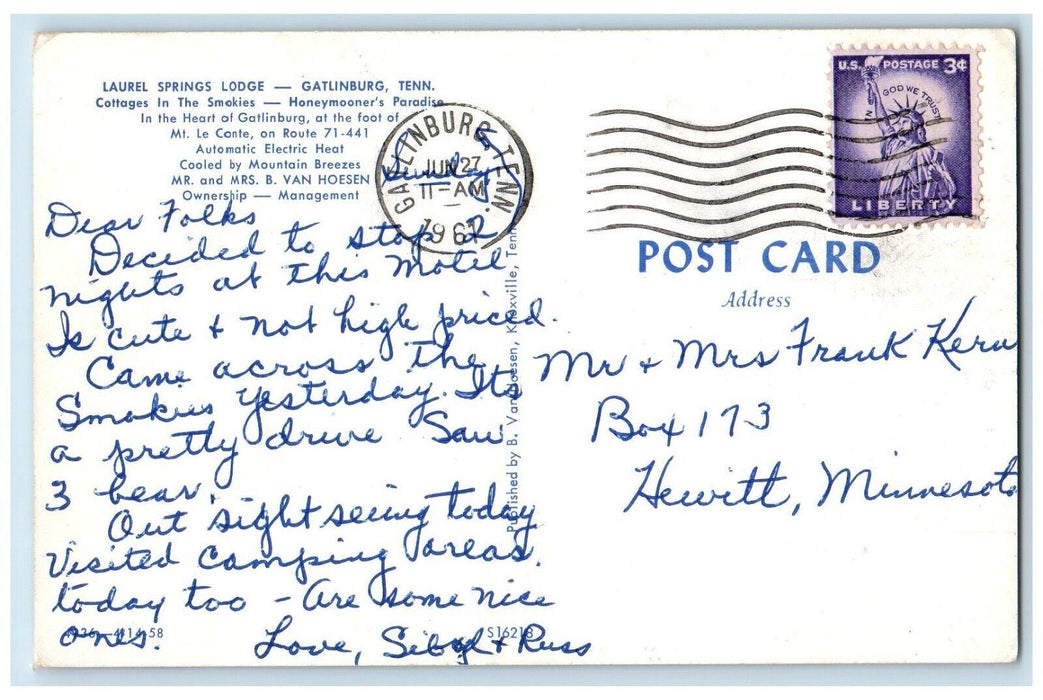 LAUREL SPRINGS LODGE — GATLINBURG, TENN.
Cottages In The Smokies — Honeymooner's Paradise
In the Heart of Gatlinburg, at the foot of
Mt. Le Conte, on Route 71-441
Automatic Electric Heat
Cooled by Mountain Breezes
MR. and MRS. B. VAN HOESEN
Ownership — Management
GATLINBURG, TENN.
JUN 27
11-AM
1961
Sunday
Dear Folks
Decided to stop 2
nights at this Motel
Is cute + not high priced.
Came across the
Smokies yesterday. Its
a pretty drive Saw
3 bear.
Out sight seeing today
Visited camping areas.
today too - Are some nice
ones.
Love, Sibyl + Russ
4936-4114-58
S16218
Published by B. Van Hoesen, Knoxville, Tenn.
U.S. POSTAGE 3¢
IN GOD WE TRUST
LIBERTY
POST CARD
Address
Mr + Mrs Frank Kern
Box 173
Hewitt, Minnesota